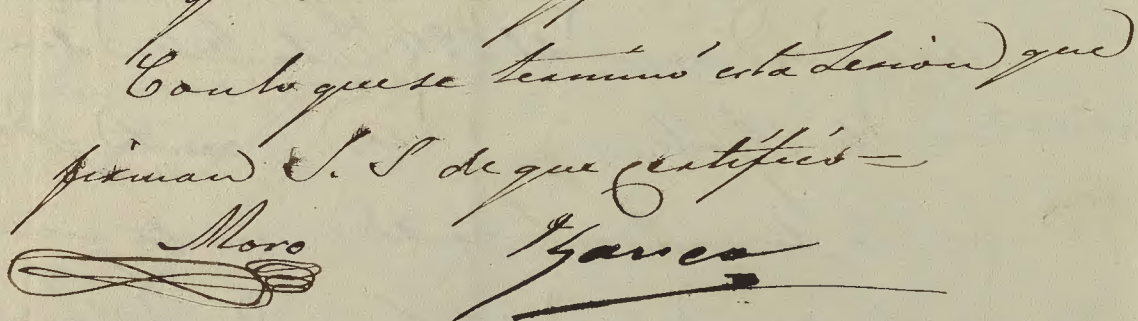 Con lo que se terminó esta Sesion que
firman S. S de que certifico =
Moro